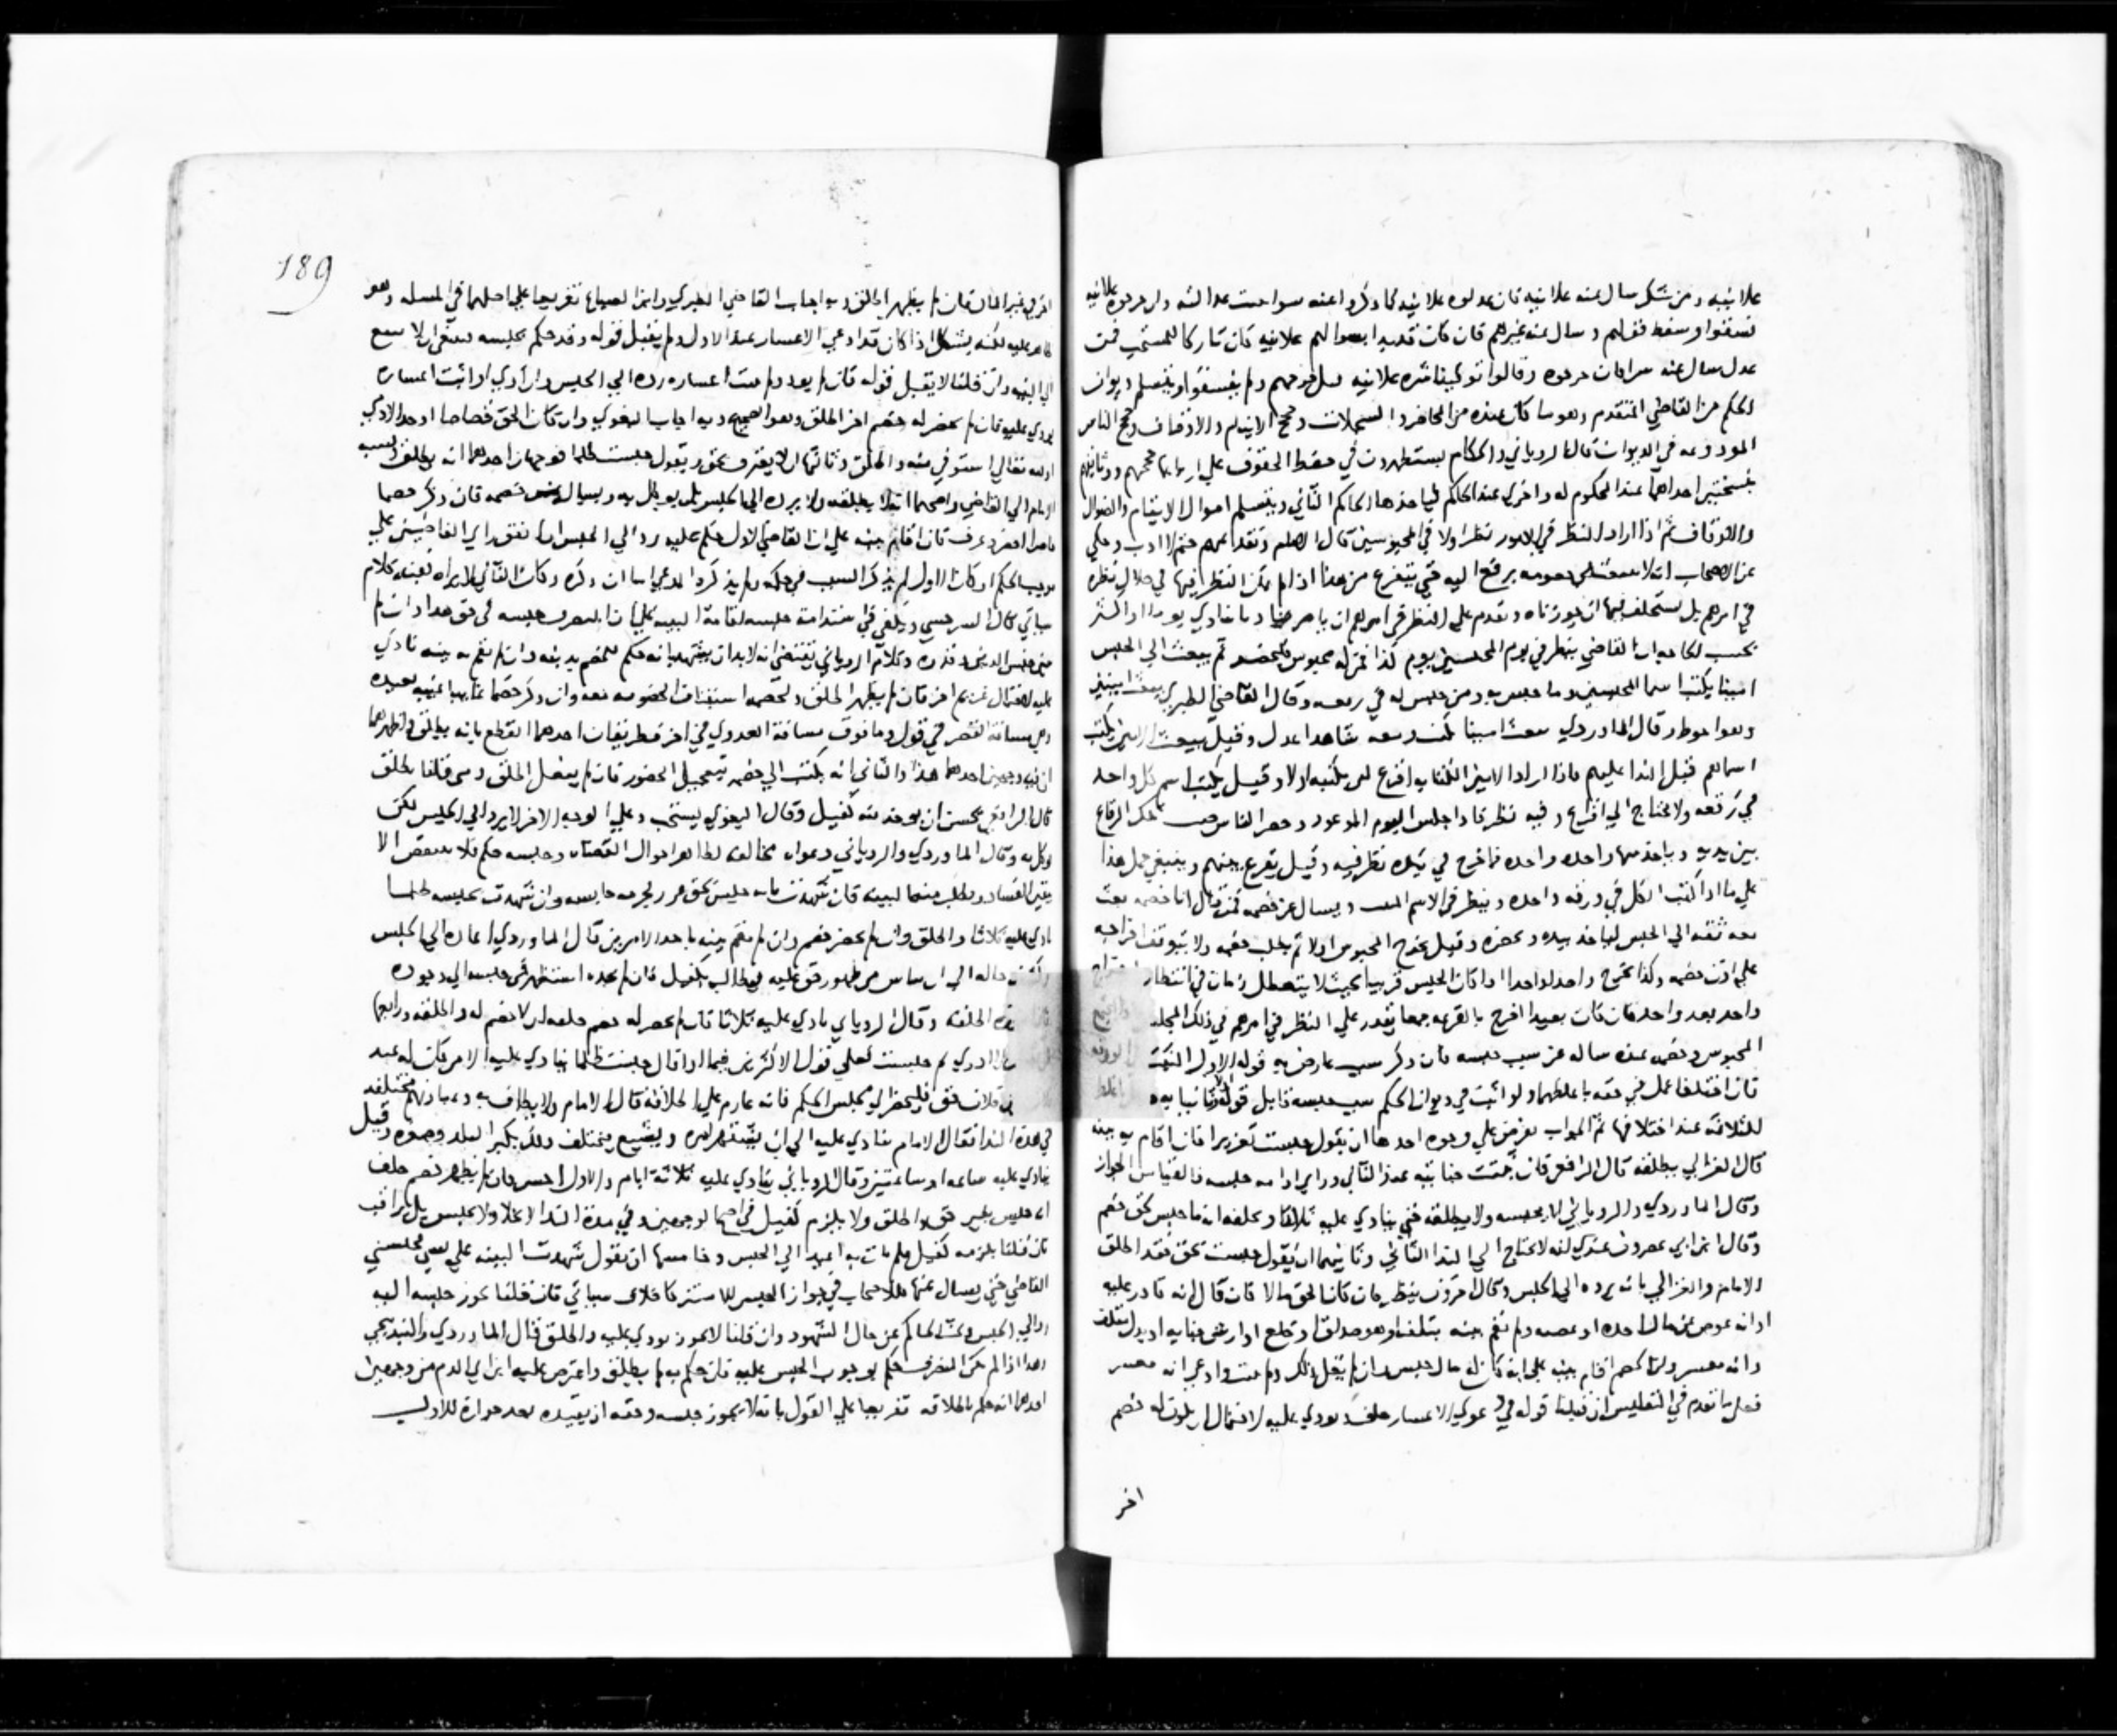 علانيه ومن شكل سال عنه علانيه فان عدلوه علانيه كما ذكروا عنه سرا
فسقوا وسقط قولهم وسال عنه غيرهم فان كان قديدا بعدوالهم علانيه كان تاركا للمستحب فمن
عدل سال عنه سرا فان جرحوه وقالوا توكيفا سره علانيه جرحهم ولم يفسقوا ويتسلم ديوان
الحكم من القاضي المتقدم وهو ما كان عنده من المحاضر والسجلات وحجج الايتام والاوقاف وحجج الناس
المودوعه في الديوان قال الروياني والحكام يستظهرون في حفظ الحقوق علي اربابها بحججهم ووثائقهم
بنسختين احداهما عند المحكوم له واخرى عند الحاكم فياخذها الحاكم الثاني ويتسلم اموال الايتام والضوال
والاوقاف ثم اذا اراد النظر في الامور نظر اولا في المحبوسين قال
عن الاصحاب انه لا خصومه برفع اليه حتي يتفرغ من هذا اذا لم يكن النظر فيها في خلال نظره
في امرهم بل يستخلف فيها ان جوزناه ويقدم علي النظر في امرهم ان يامر مناديا ينادي يوما او اكثر
بحسب الحاجه ان القاضي ينظر في يوم المحبسين يوم كذا فمن له محبوس فليحضر ثم يبعث الي الحبس
امينا يكتب اسما المحبسين وما حبس به ومن حبس له في رقعه وقال القاضي الطبري يبعث امينين
وهو احوط وقال الماوردي يبعث امينا يكتب ومعه شاهدا عدل وقيل يبعث الامين يكتب
اسماهم قبل الندا عليهم فاذا اراد الامين الكتابه اقرع لمن يكتبه اولا وقيل يكتب اسم كل واحد
في رقعه ولا يحتاج الي اقراع وفيه نظر فاذا جلس اليوم الموعود وحضر الناس تلك الرقاع
بين يديه وياخذ منها واحده واحده فما خرج في يده نظر فيه وقيل يقرع بينهم وينبغي حمل هذا
علي ما اذا كتب الكل في ورقه واحده وينظر في الاسم ويسال عن خصمه فمن قال انا خصمه بعث
معه ثقه الي الحبس لياخذ بيده ويحضره وقيل يخرج المحبوس اولا ثم يطلب خصمه ولا يتوقف اخراجه
علي اذن خصمه وكذا يخرج واحدا واحدا اذا كان الحبس قريبا بحيث لا يتعطل زمان في انتظار
واحد بعد واحد فان كان بعيدا اخرج بالقرعه جمعا يقدر علي النظر في امرهم في ذلك المجلس
المحبوس وخصمه عنده ساله عن سبب حبسه فان ذكر سبب عارض به قوله الاول
فان اختلفا عمل في حقه باغلظهما ولو اثبت في ديوان الحكم سبب حبسه قابل قوله
للثلاثه عند اختلافها ثم الجواب يعرض علي وجوه احدها ان يقول حبست تعزيرا فان اقام به بينه
قال الغزالي يطلقه قال الرافعي فان تحققت جنايته عند الثاني وراي ادامه حبسه فالقياس الجواز
وقال الماوردي والروياني لا يحبسه ولا يطلقه حتي ينادي عليه ثلاثا ويحلفه انه ما حبس بحق خصم
وقال ابن ابي عصرون عندي انه لا يحتاج الي الندا الثاني وثانيها ان يقول حبست بحق فقد اطلق
الامام والغزالي بانه يرده الي الحبس وقال اخرون ينظر فان كان الحق مالا فان قال انه قادر عليه
او انه عوض عن مال اخذه او غصبه ولم تقم بينه بتلفه او هو صداق او خلع او ارش جنايه او بدل متلف
وانه معسر اقام بينه علي انه كان له مال حبس وان لم يقل ذلك ولم يثبت وادعي انه معسر
فعلي ما تقدم في التفليس ان قبلنا قوله في دعوي الاعسار حلف ونودي عليه لاحتمال ان يكون له خصم
اخر
189
اخر في غير المال فان لم يظهر اطلق وبه اجاب القاضي الطبري وابن الصباغ تفريعا علي اصلهما في المسله وهو
ظاهر عليه لكنه يشكل اذا كان قد ادعي الاعسار عند الاول ولم يقبل قوله وقد حكم بحبسه
الي البينه وان قلنا لا يقبل قوله فان لم يود ولم يثبت اعساره رده الي الحبس وان ادي او اثبت اعساره
نودي عليه فان لم يحضر له خصم اخر اطلق وهو الصحيح وبه اجاب البغوي وان كان الحق قصاصا او حد الادمي
او لله تعالي استوفي منه واطلق وثالثها ان لا يعترف بحق ويقول حبست ظلما فوجهان احدهما انه يطلق
الامام الي القاضي واصحهما انه لا يطلقه ولا يرده الي الحبس بل يوكل به ويسال عن خصمه فان ذكر خصما
حاضرا احضر وعرف فان اقام بينه علي ان القاضي الاول حكم عليه رد الي الحبس ان اتفق راي القاضيين علي
موجب الحكم او كان الاول لم يذكر السبب في حكمه ولم يذكر المدعي اما ان ذكره وكان الثاني لا يراه ففيه كلام
سياتي قال السرخسي ويكفي في استدامة حبسه اقامة البينه علي حبسه في حق هذا وان لم
يبين جنس الدين وقدره وكلام الروياني يقتضي انه لابد ان يشهد بانه حكم للخصم بدينه وان لم تقم به بينه نادي
عليه لاحتمال غريم اخر فان لم يظهر اطلق ولخصمه استيناف الخصومه معه وان ذكر خصما غائبا غيبه بعيده
وهي مسافه القصر في قول وما فوق مسافة العدوي في اخر فطريقان احدهما القطع بانه يطلق واظهرهما
ان فيه وجهين احدهما هذا والثاني انه يكتب الي خصمه بتعجيل الحضور فان لم يفعل اطلق ومتي قلنا يطلق
قال الرافعي يحسن ان يوخذ منه كفيل وقال البغوي يستحب وعلي الوجه الاخر لا يرد الي الحبس لكن
يوكل به وقال الماوردي والروياني دعواه مخالفه لظاهر احوال القضاه وحبسه حكم فلا ينقض الا
بيقين الفساد ويطلب منهما البينه فان شهدت بانه حبس بحق عزر لجرحه حابسه وان شهدت بحبسه ظلما
نادي عليه ثلاثا واطلق وان لم يحضر خصم وان لم تقم بينه باحد الامرين قال الماوردي اعاده الي الحبس
وكشف حاله الي ان يياس من ظهور حق عليه فيطالب بكفيل فان لم يجده استظهر في حبسه الي وجوده
اطلقه وقال الروياني نادي عليه ثلاثا فان لم يحضر له خصم حلفه ان لا خصم له واطلقه ورابعها
لم حبست فعلي قول الاكثرين فيما اذا قال حبست ظلما ينادي عليه الا من كان له عند
فلان حق فليحضر الي مجلس الحكم فانه عازم علي اطلاقه قال الامام ولا يطاف به وعبارتهم مختلفه
في مدة الندا فقال الامام ينادي عليه الي ان يشتهر امره ويشيع ويختلف ذلك بكبر البلد وصغره وقيل
ينادي عليه ساعه او ساعتين وقال الروياني ينادي عليه ثلاثة ايام والاول احسن فان لم يظهر خصم حلف
انه حبس بغير حق واطلق ولا يلزم كفيل في اصح الوجهين وفي مدة الندا لا يخلا ولا يحبس بل يراقب
فان قلنا يلزمه كفيل فلم يات به اعيد الي الحبس وخامسها ان يقول شهدت البينه علي فحبسني
القاضي حتي يسال عنها فللاصحاب في جواز الحبس للاستزكا خلاف سياتي فان قلنا يجوز حبسه اليه
رد الي الحبس وبحث الحاكم عن حال الشهود وان قلنا لا يجوز نودي عليه واطلق قال الماوردي والبندنيجي
وهذا اذا لم يكن المصرف حكم بوجوب الحبس عليه فان حكم به لم يطلق واعترض عليه ابن ابي الدم من وجهين
احدهما انه حكم باطلاقه تفريعا علي القول بانه لا يجوز حبسه وحقه ان يقيده بعد جوازه للاول